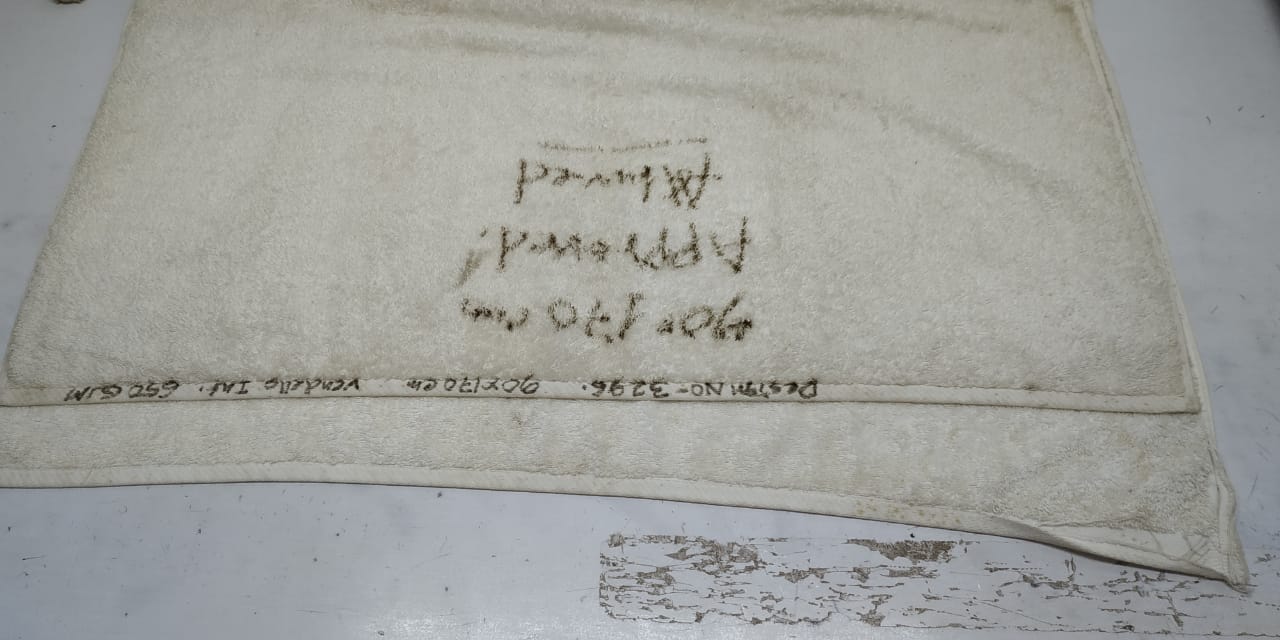 Design NO- 3296. 90x170 cm vendello Int. 650 GSM
90x 170 cm
Approved!